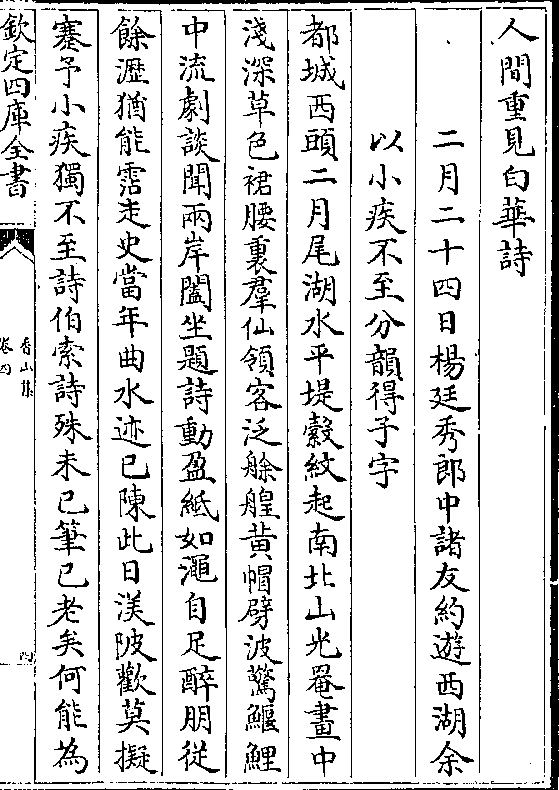 人間重見白華詩
二月二十四日楊廷秀郎中諸友約遊西湖余
以小疾不至分韻得子字
都城西頭二月尾湖水平堤縠紋起南北山光罨畫中
淺深草色裙腰裏羣仙領客泛艅艎黃帽劈波驚鰋鯉
中流劇談聞兩岸闔坐題詩動盈紙如澠自足醉朋從
餘瀝猶能霑走史當年曲水迹已陳此日渼陂歡莫擬
蹇予小疾獨不至詩伯索詩殊未已筆已老矣何能為
欽定四庫全書
香山集
卷四
四